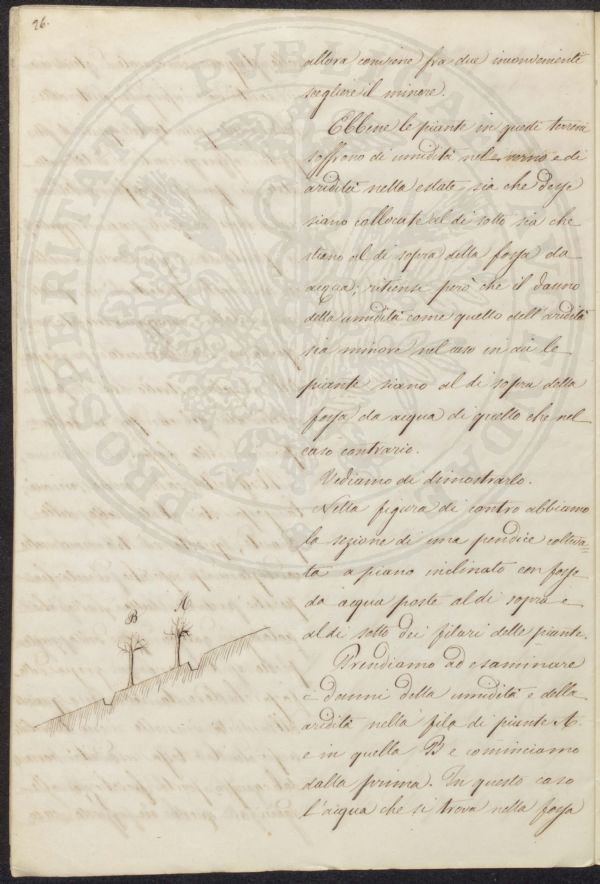 26.
allora conviene fra due inconvenienti
scegliere il minore.
Ebbene le piante in questi terreni
soffrono di umidità nel verno e di
aridità nella estate, sia che desse
siano collocate al di sotto sia che
stiano al di sopra della fossa da
acqua; ritiensi però che il danno
della umidità come quello dell'aridità
sia minore nel caso in cui le
piante siano al di sopra della
fossa da acqua di quello che nel
caso contrario.
Vediamo di dimostrarlo.
Nella figura di contro abbiamo
la sezione di una pendice coltiva=
ta a piano inclinato con fosse
da acqua poste al di sopra e
al di sotto dei filari delle piante.
Prendiamo ad esaminare
i danni della umidità e della
aridità nella fila di piante A
e in quella B e cominciamo
dalla prima. In questo caso
l'acqua che si trova nella fossa
B A
PROSPERITATI PUBLICAE AUGENDAE